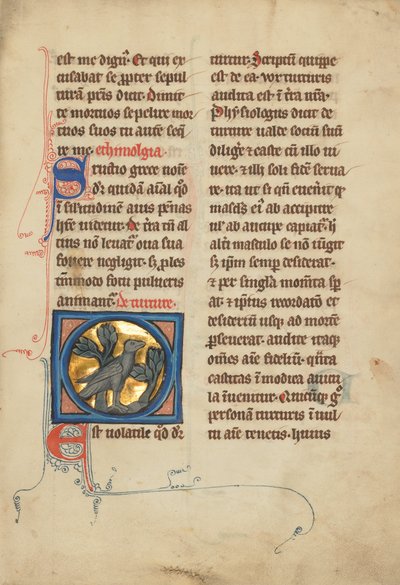 est me digū. Et qui ex
cusabat se propter sepul
turā pr̄is dicit. Dimit
te mortuos sepelire mor
tuos suos tu autē seq̄
re me. ethimologia
Strutio grece noīe
dr̄ quidā aīal qd̄
ī siītudinem auis pennas
habere videtur. de t̄ra tn̄ al
tius nō leuat̄ oua sua
fouere negligit. sꝫ proles
tm̄modo fotu pulueris
animant̄. De turture.
Est uolatile qd̄ dr̄
turtur. Scriptū quippe
est de ea. vox turturis
audita est ī t̄ra nr̄a.
Phisiologus dicit de
turture ualde sociū suū
diligere et caste cū illo ui
uere. et illi soli fidē serua
re. ita ut si qn̄ euenerit ꝙ
masculꝰ eiꝰ ab accipitre
ul' ab aucupe capiat̄. hec
alt̄i masculo se nō iūgit
sꝫ ip̄m semper desiderat.
et per singla momēta sp̄
at. et ip̄ius recordatōe et
desideriū usqꝫ ad mortē
perseuerat. audite itaqꝫ
om̄es aīe fidelium. q̄nta
castitas ī modica auicu
la īuenitur. Quicūqꝫ gͦ
personā turturis ī uul
tu aīe tenetis. huius